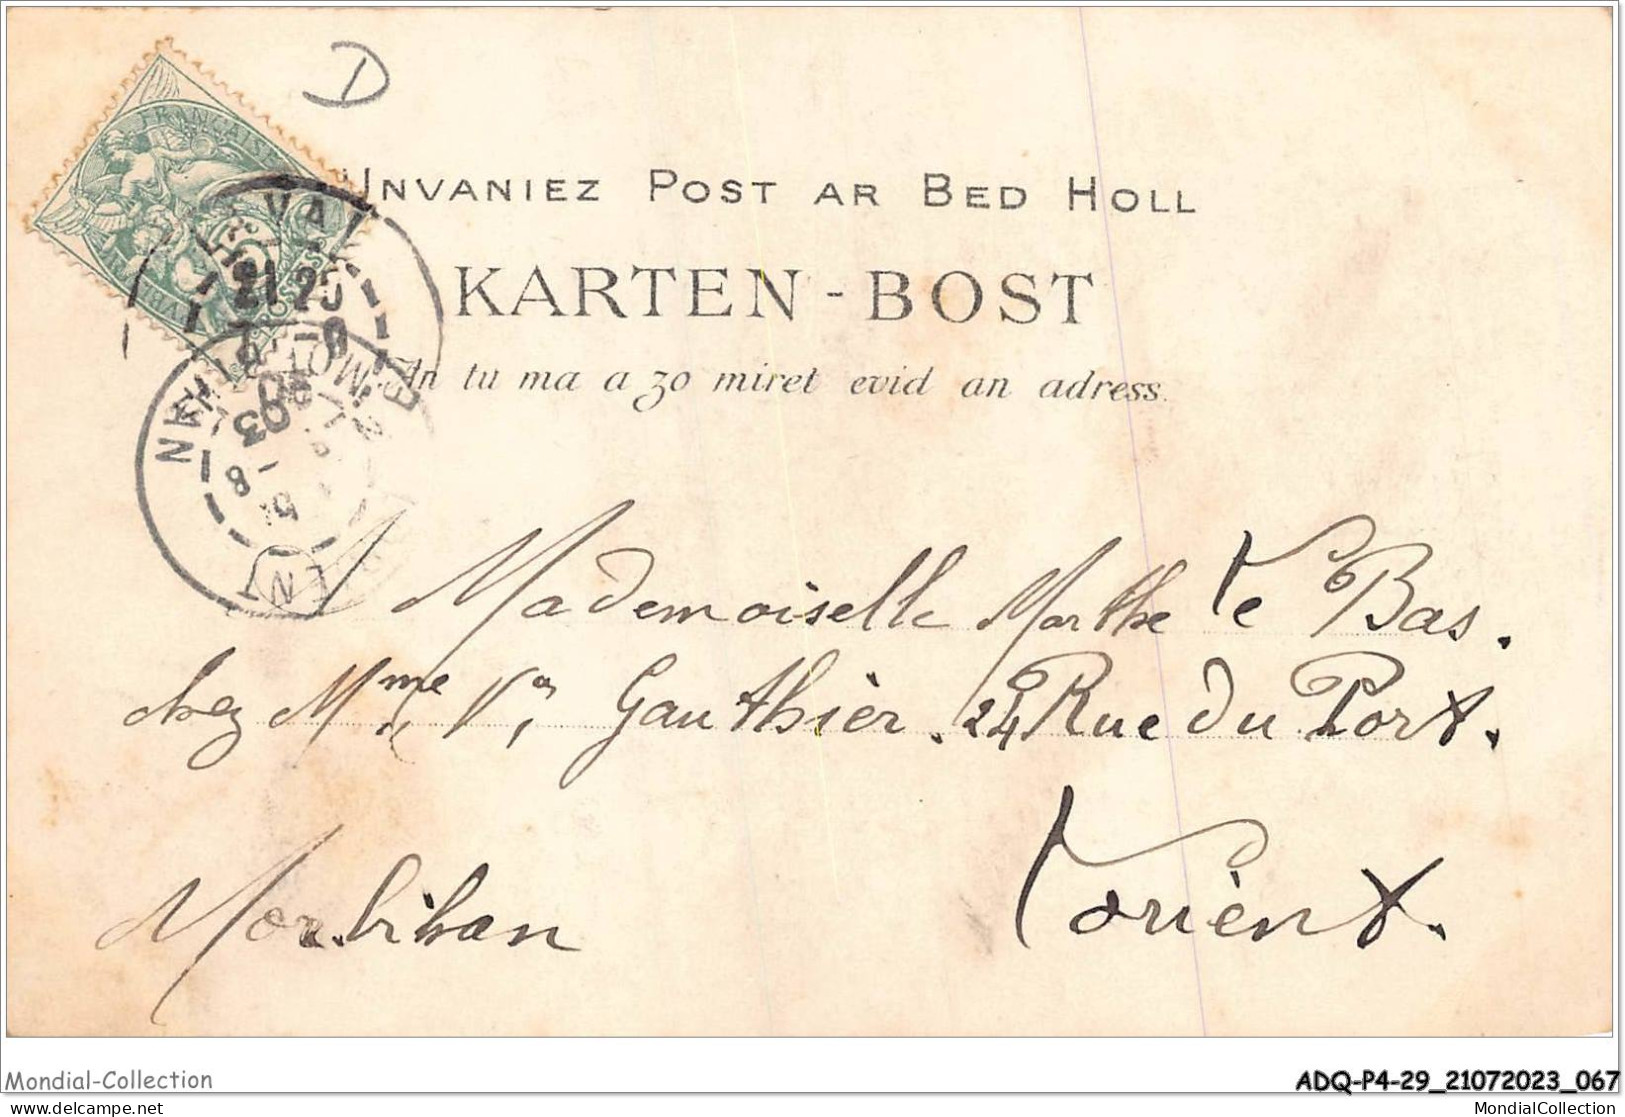 D
FRANÇAISE
UNVANIEZ POST AR BED HOLL
KARTEN-BOST
An tu ma a zo miret evid an adress.
LAVAL
21 25
03
Mademoiselle Marthe Le Bas.
chez Mme Vve Gauthier. 24 Rue du Port.
Lorient.
Morbihan
Mondial-Collection
ADQ-P4-29_21072023_067
delcampe.net
MondialCollection